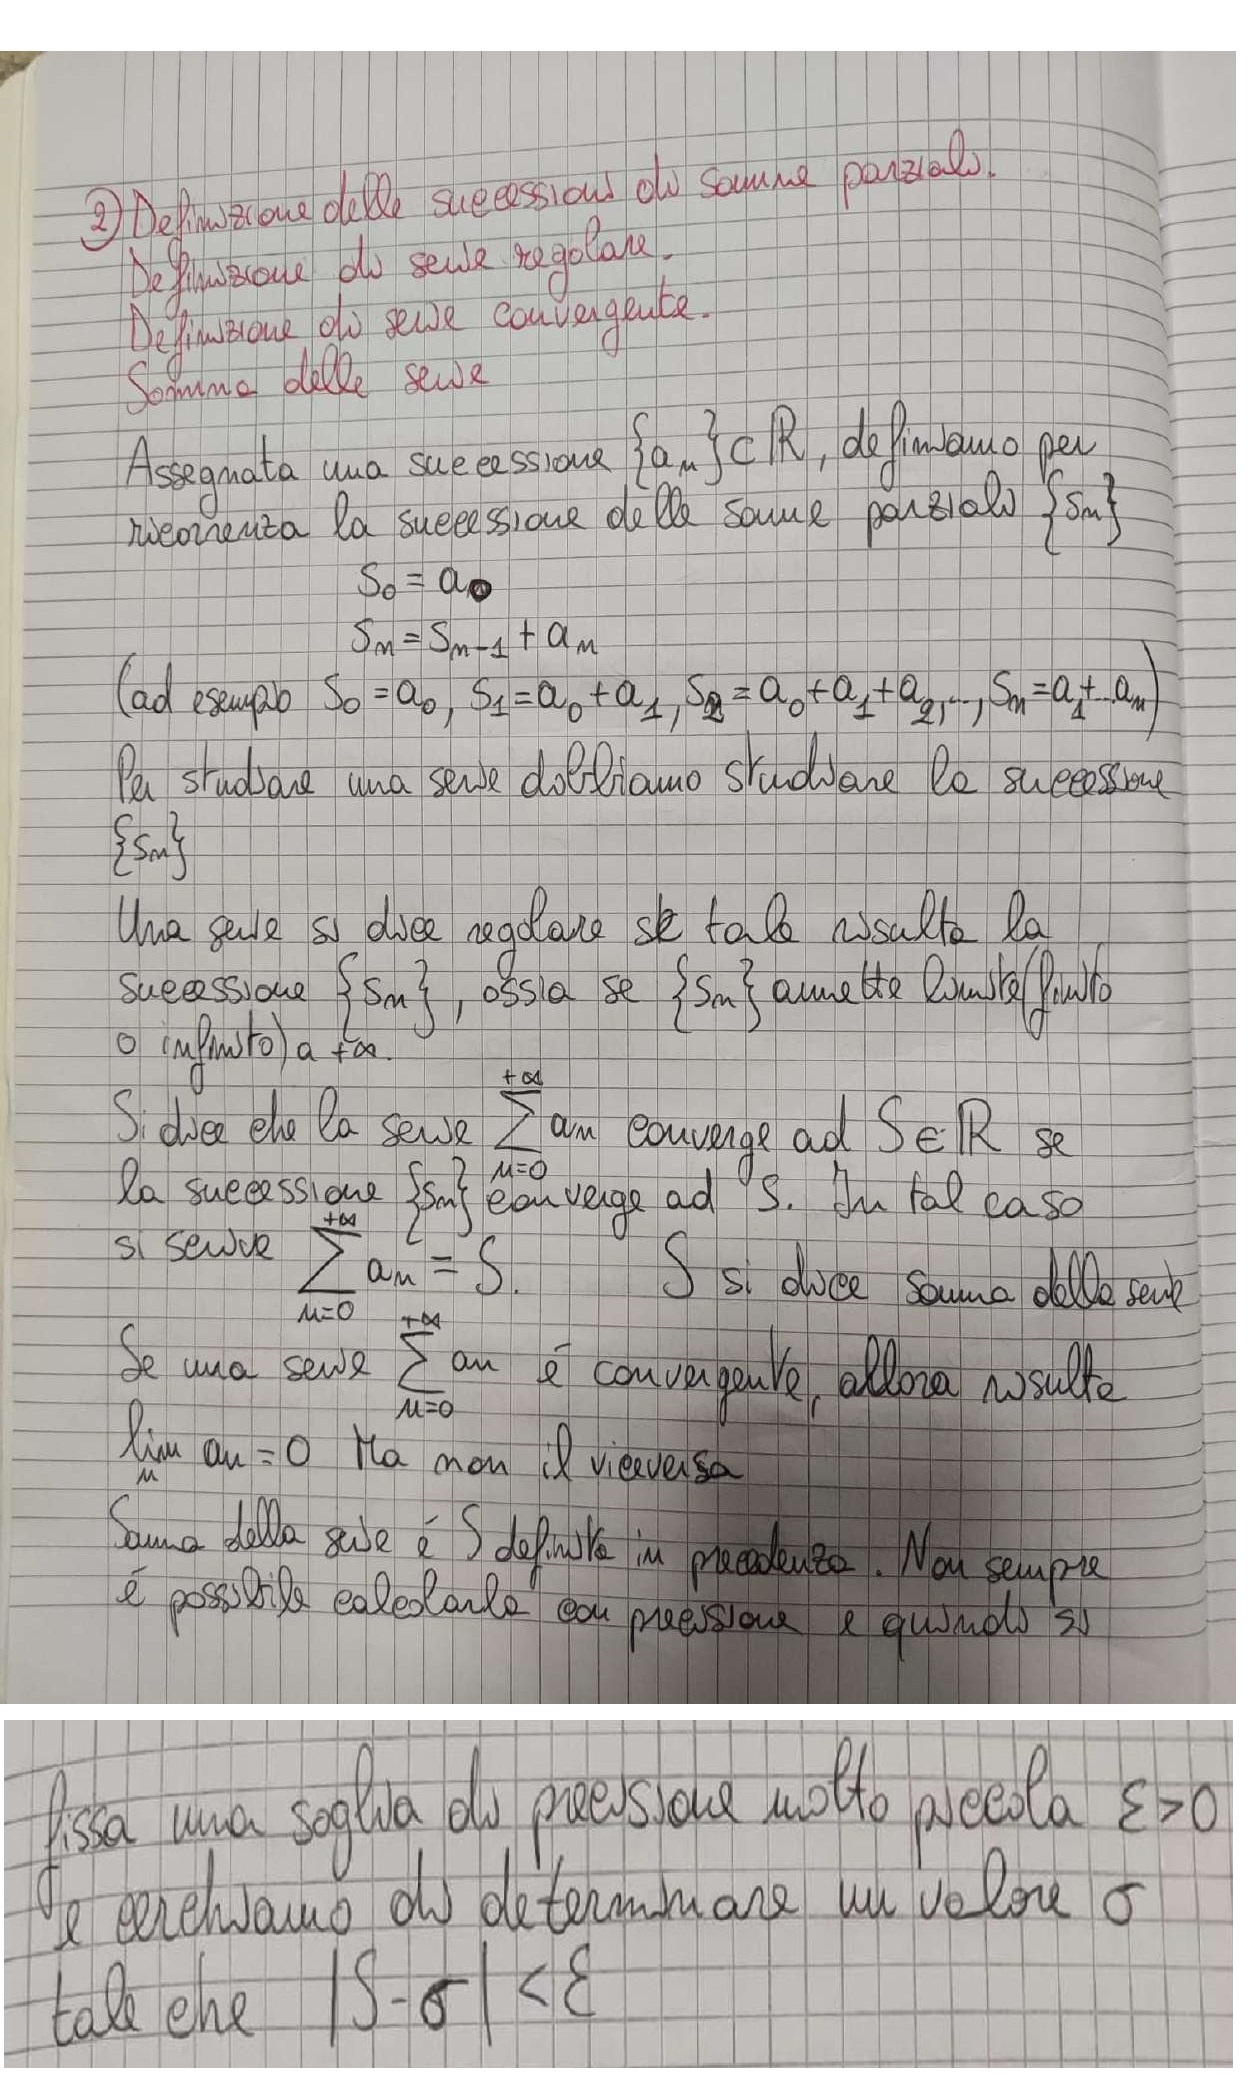 2) Definizione delle successioni di somme parziali.
Definizione di serie regolare.
Definizione di serie convergente.
Somma delle serie
Assegnata una successione {aₙ}⊂ℝ, definiamo per
ricorrenza la successione delle somme parziali {sₙ}
s₀ = a₀
sₙ = sₙ₋₁ + aₙ
(ad esempio s₀ = a₀, s₁ = a₀ + a₁, s₂ = a₀ + a₁ + a₂,..., sₙ = a₁+...aₙ)
Per studiare una serie dobbiamo studiare la successione
{sₙ}
Una serie si dice regolare se tale risulta la
successione {sₙ}, ossia se {sₙ} ammette limite (finito
o infinito) a +∞.
Si dice che la serie ∑ₙ₌₀^{+∞} aₙ converge ad S∈ℝ se
la successione {sₙ} converge ad S. In tal caso
si scrive ∑ₙ₌₀^{+∞} aₙ = S. S si dice somma della serie
Se una serie ∑ₙ₌₀^{+∞} aₙ é convergente, allora risulta
limₙ aₙ = 0 Ma non il viceversa
Somma della serie é S definita in precedenza. Non sempre
é possibile calcolarla con precisione e quindi si
fissa una soglia di precisione molto piccola ε>0
e cerchiamo di determinare un valore σ
tale che |S-σ| < ε